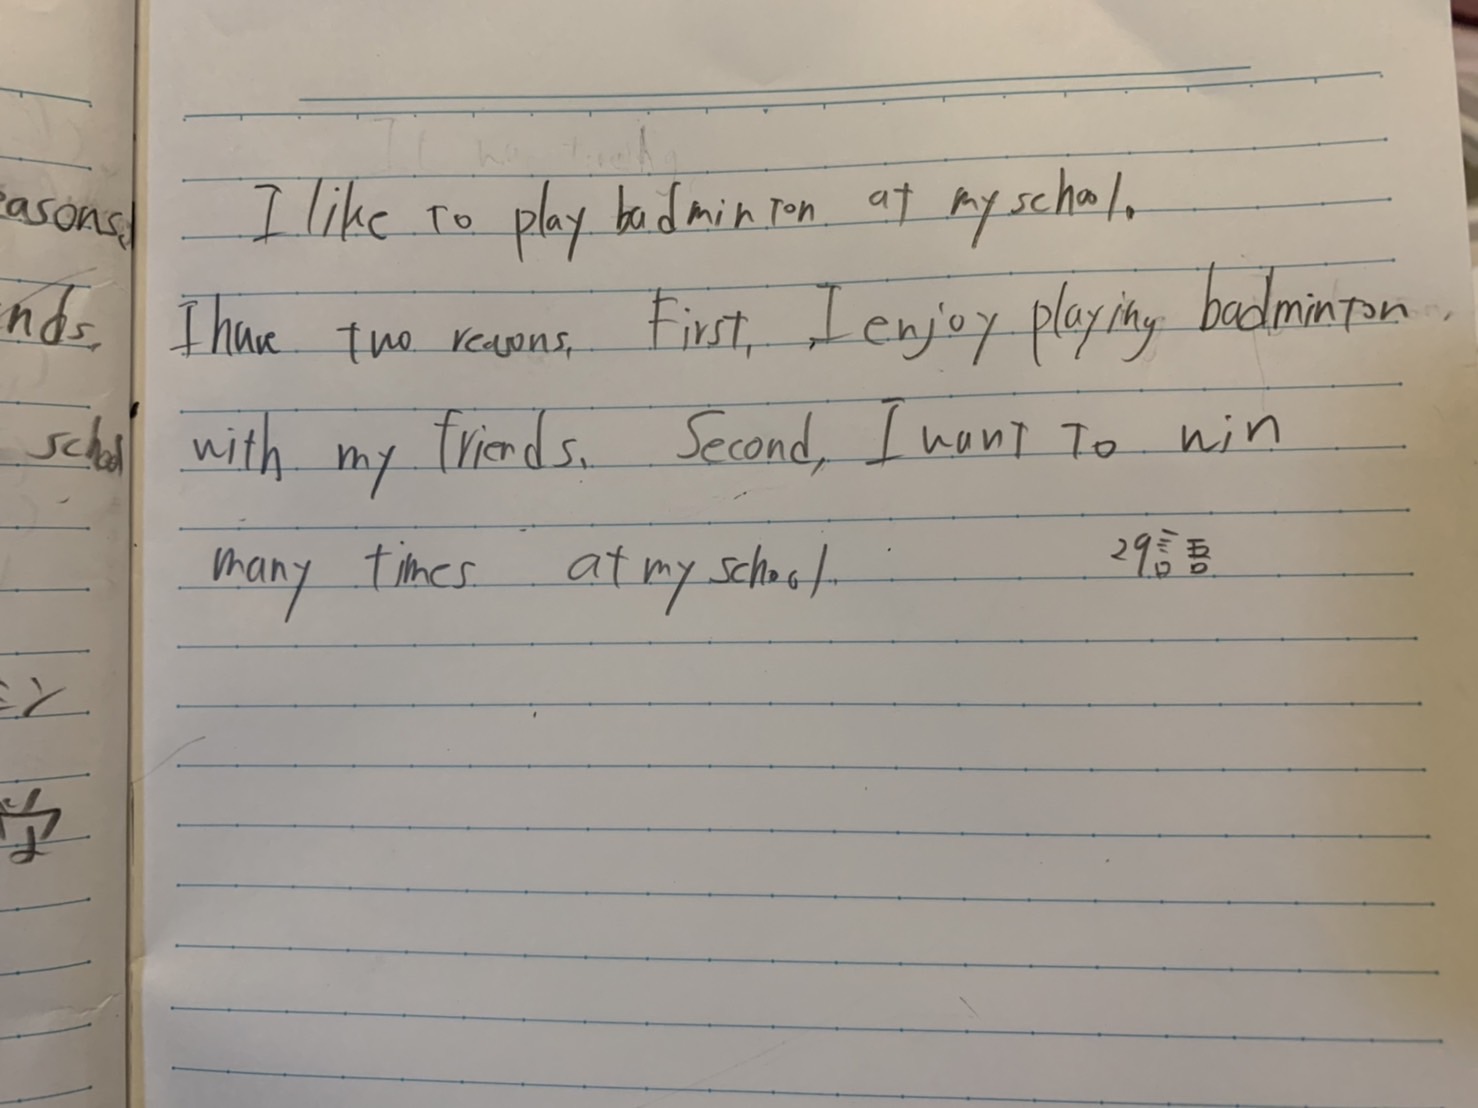 I like to play badminton at my school.
I have two reasons. First, I enjoy playing badminton
with my friends. Second, I want to win
many times at my school. 29語
easons.
nds.
school